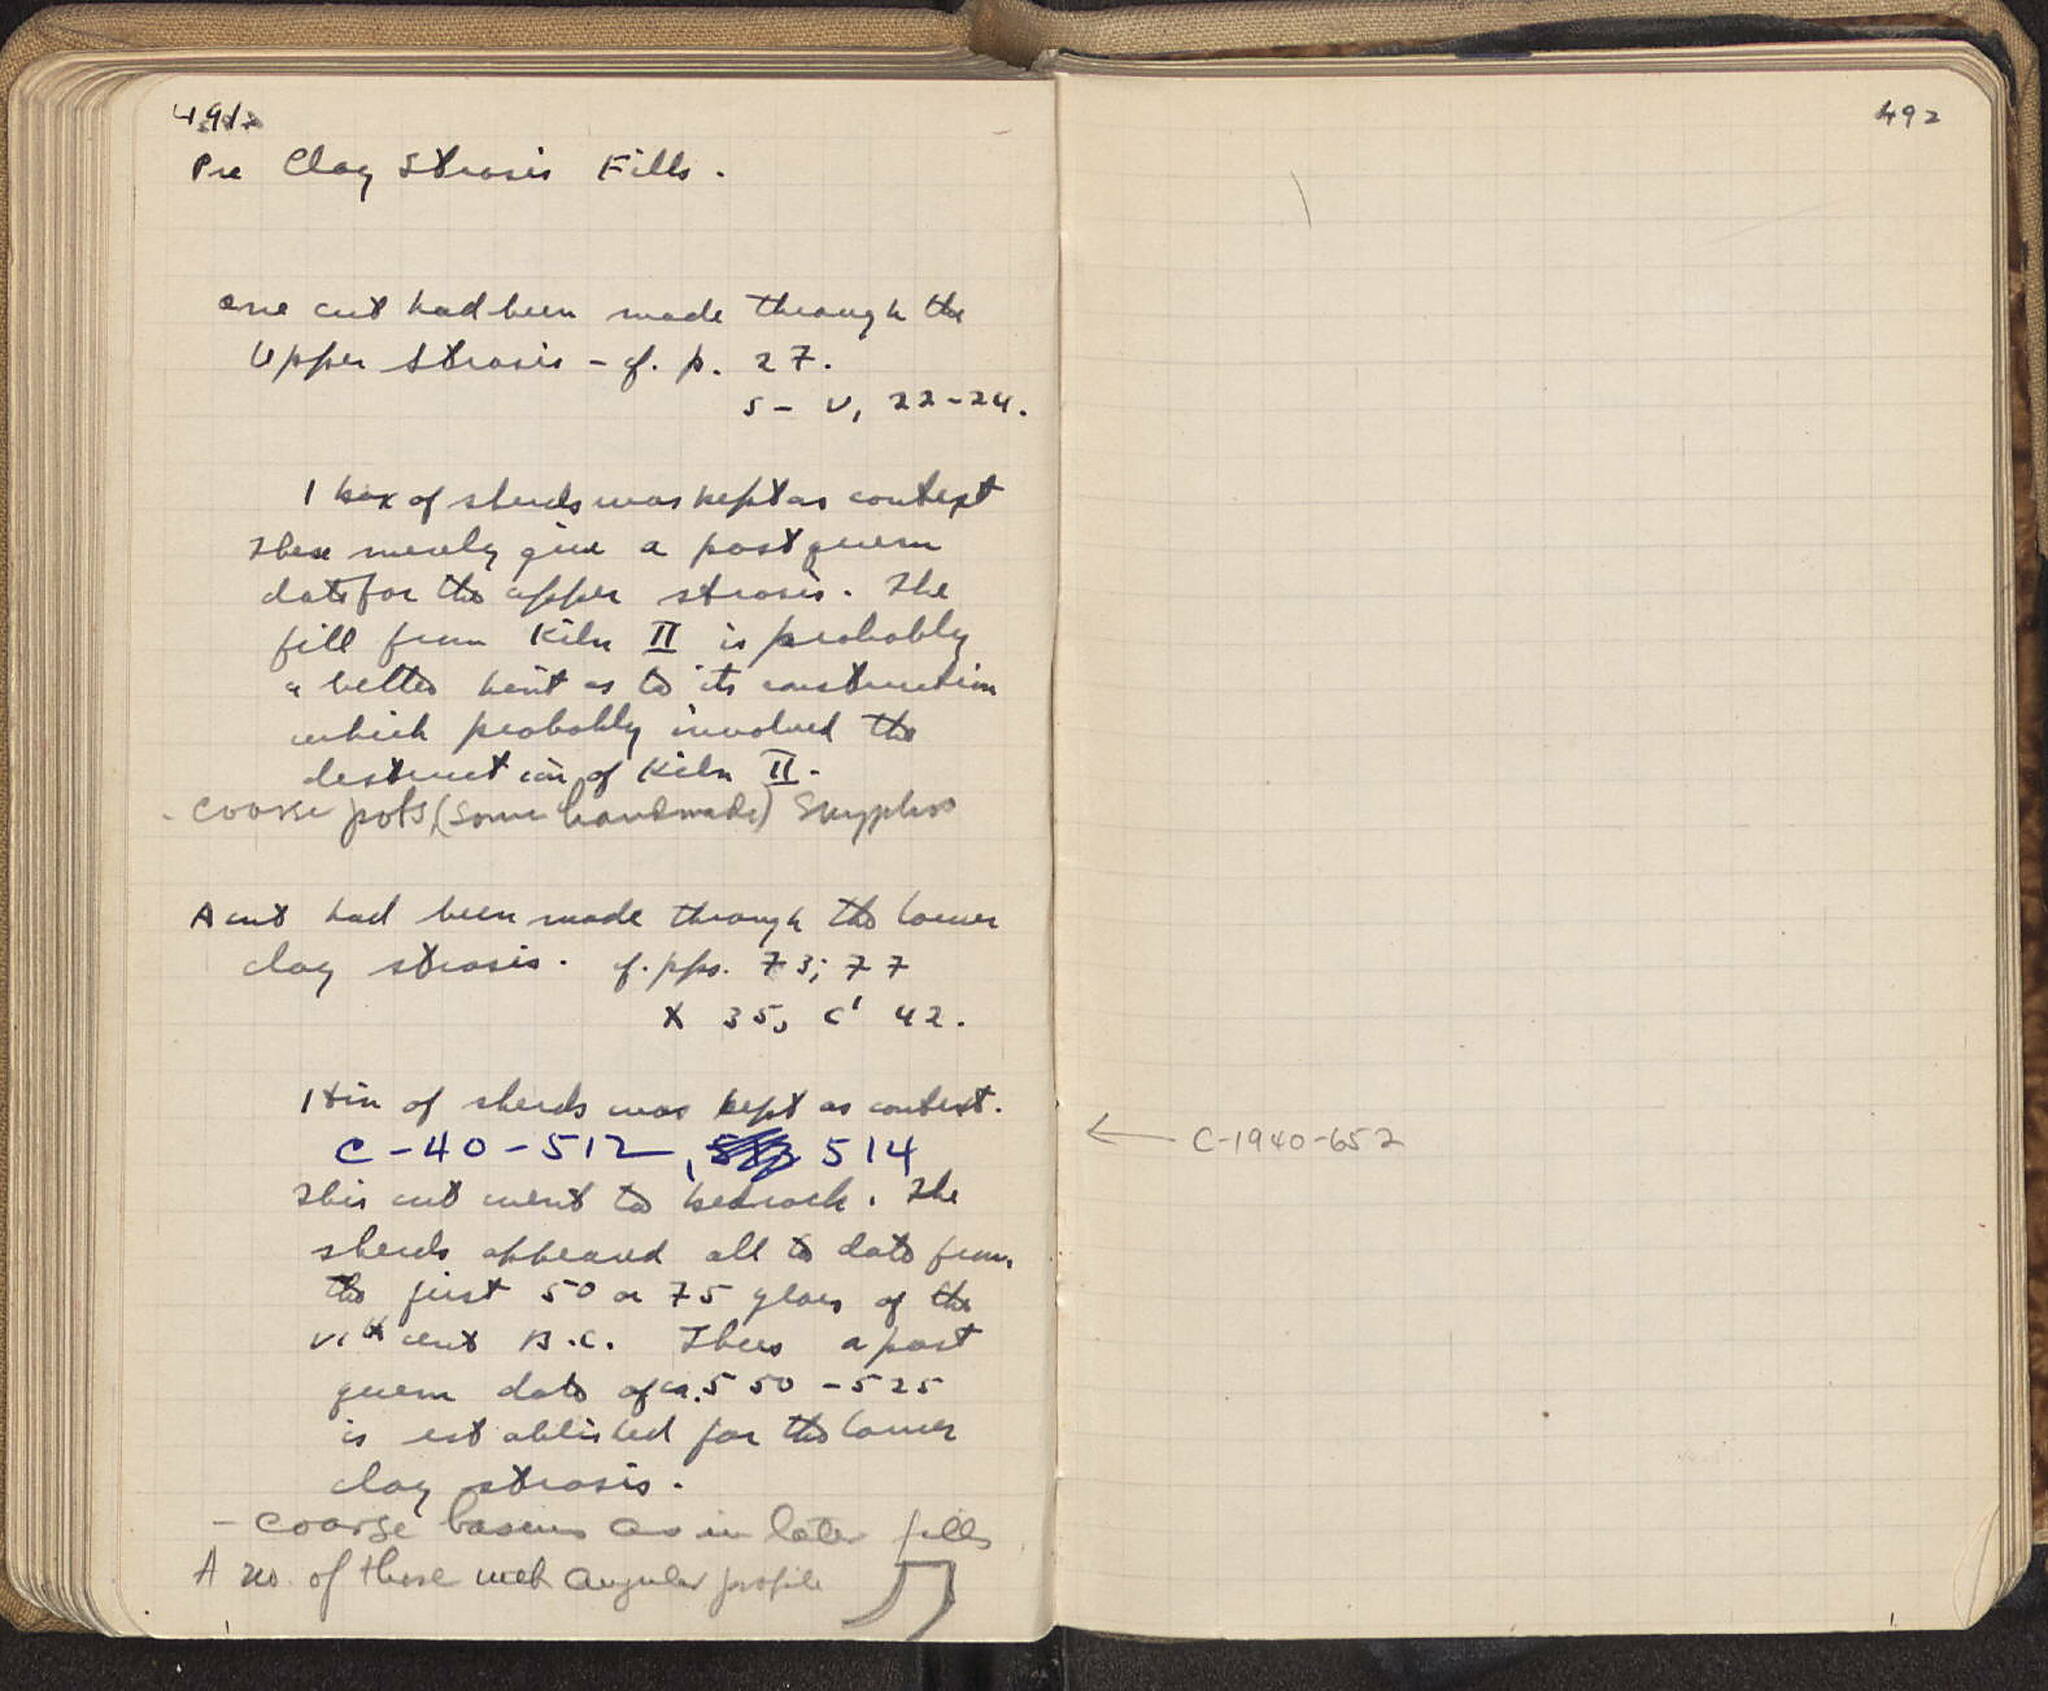 491
Pre Clay Strosis Fills.
One cut had been made through the
Upper Strosis - cf. p. 27.
S - V, 22-24.
1 box of sherds was kept as context
These merely give a post quem
date for the upper strosis. The
fill from Kiln II is probably
a better hint as to its construction
which probably involved the
destruction of Kiln II.
- coarse pots, (some handmade) Skyphos
A cut had been made through the lower
clay strosis. cf. pps. 73; 77
X 35, C' 42.
1 tin of sherds was kept as context.
C-40-512, 514
This cut went to bedrock. The
sherds appeared all to date from
the first 50 or 75 years of the
VIth cent B.C. Thus a post
quem date of ca. 550 - 525
is established for the lower
clay strosis.
- coarse basins as in later fills
A no. of these with angular profile
492
← C-1940-652